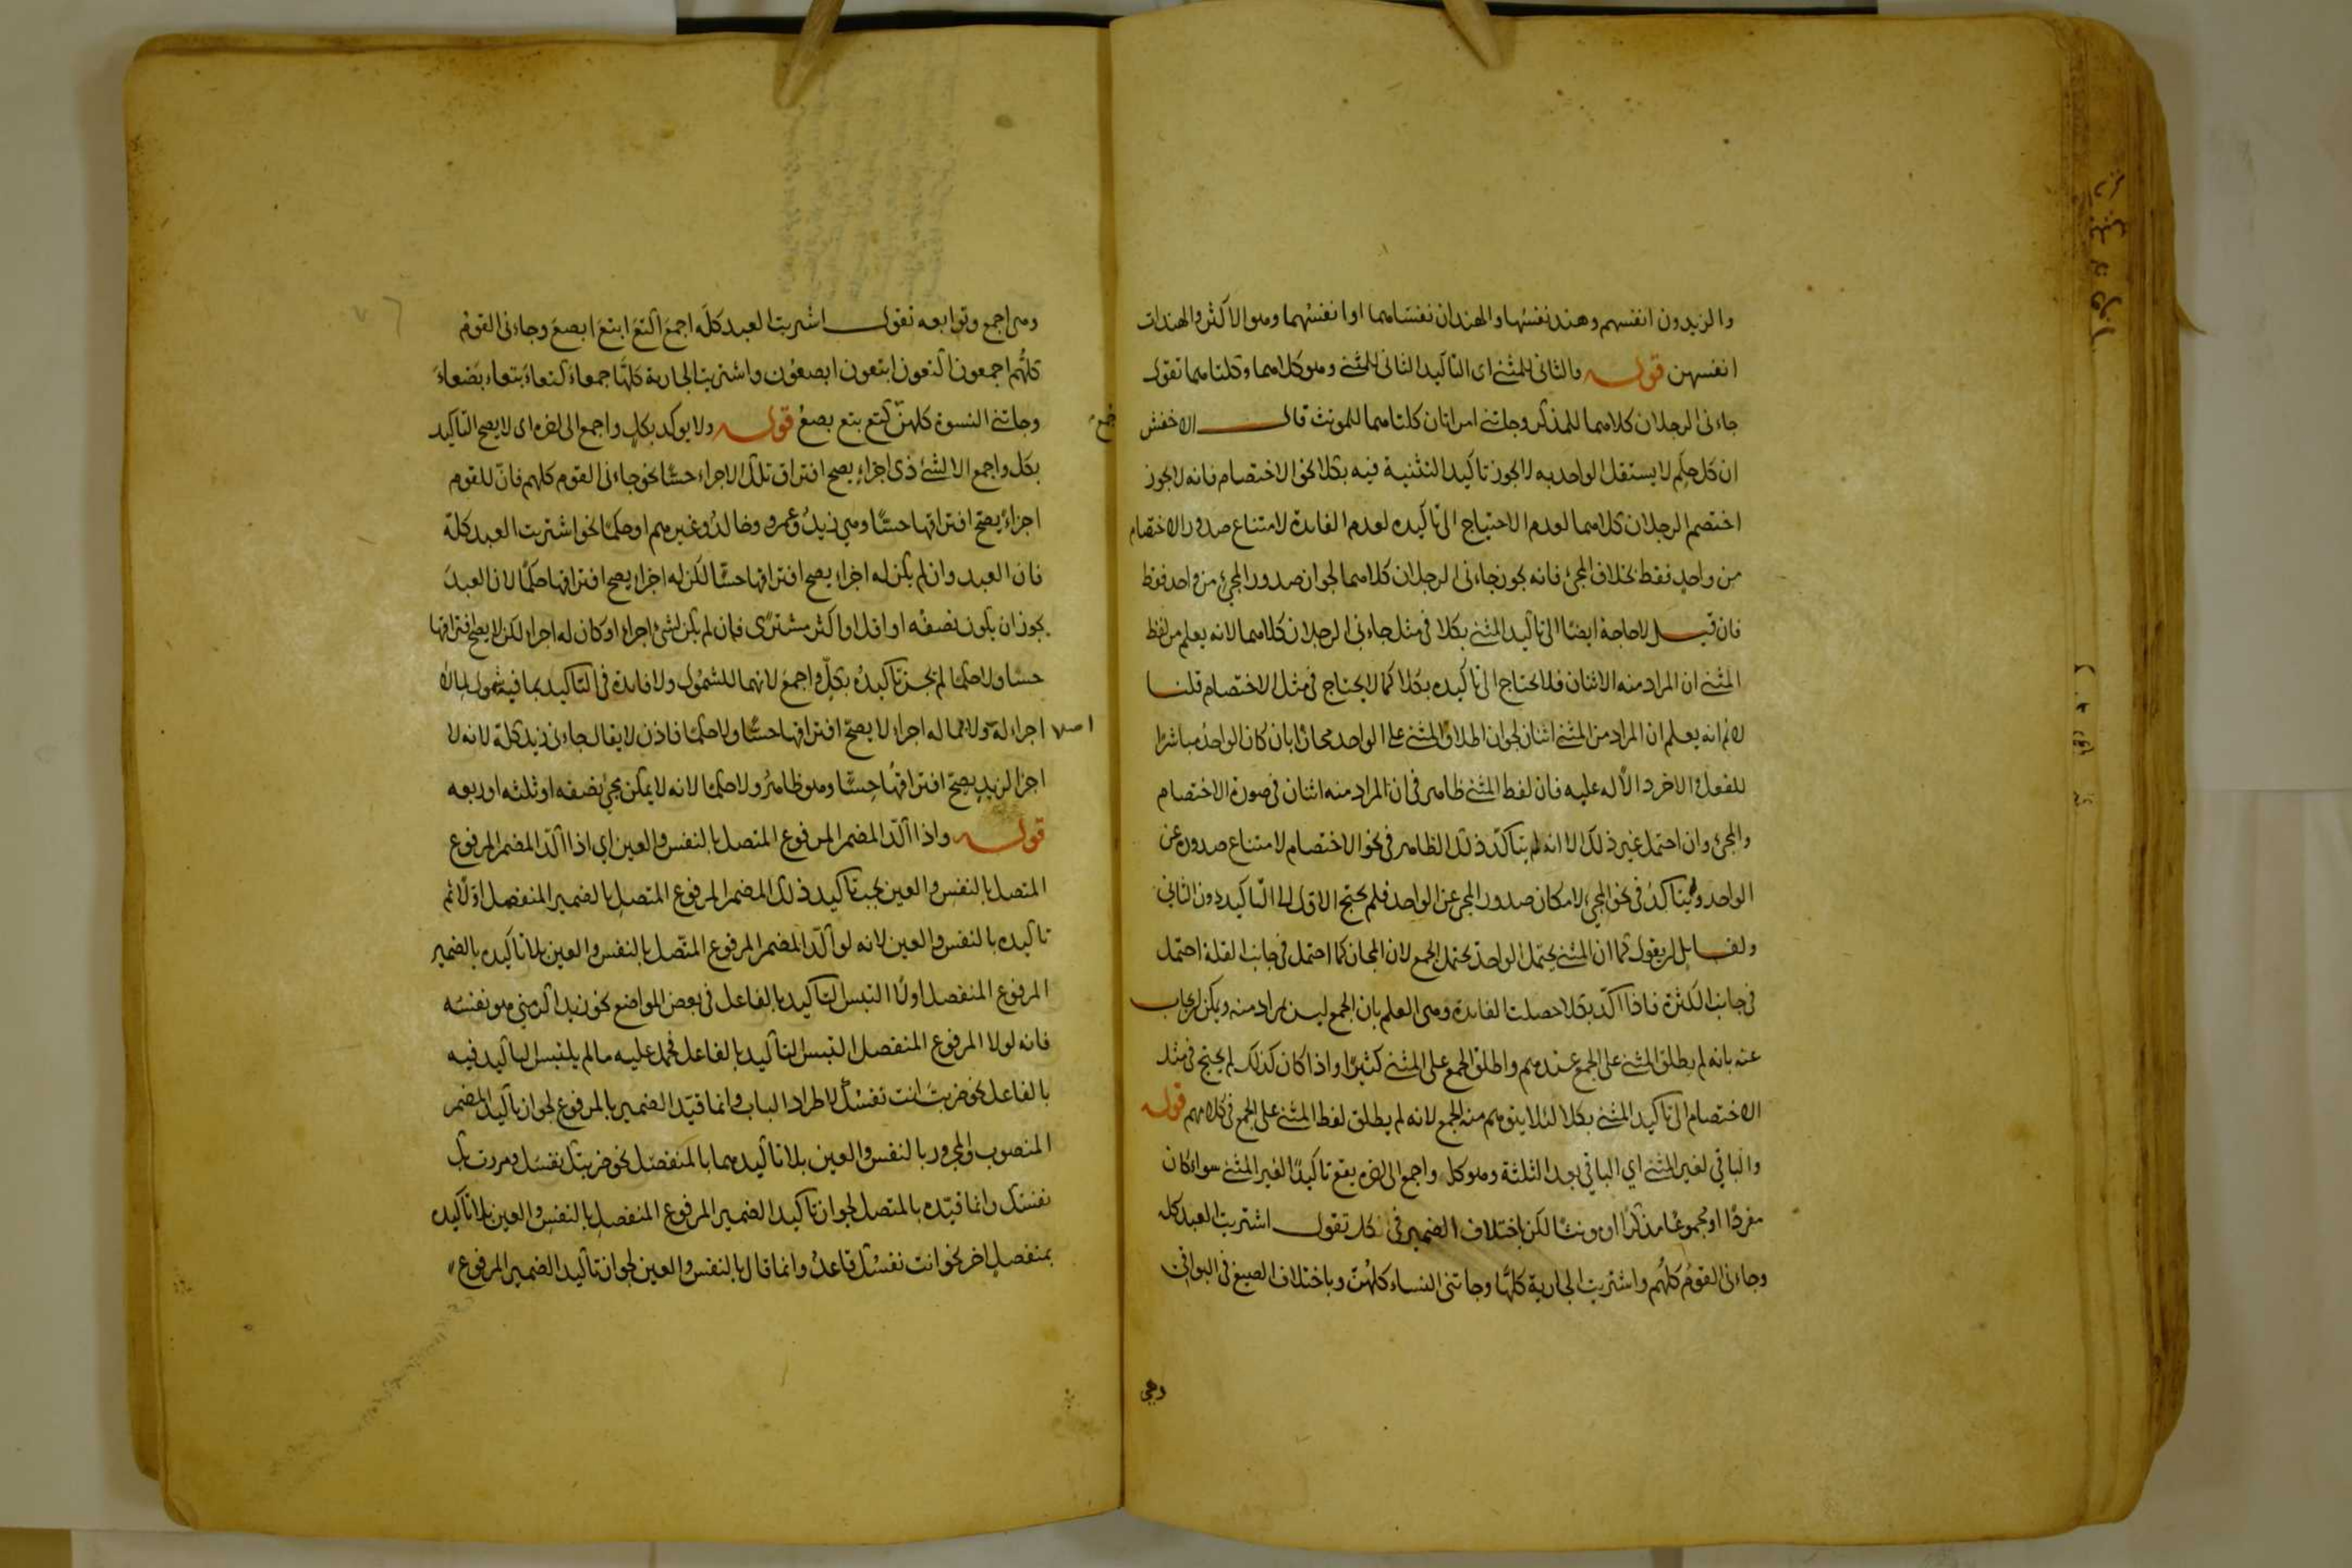 والزيدون انفسهم وهند نفسها والهندان نفساهما او انفسهما وهو الاكثر والهندات
انفسهن قوله والثاني للمثنى اى التأكيد الثانى للمثنى وهو كلاهما وكلتاهما تقول
جاءنى الرجلان كلاهما للمذكر وجاءتنى امراتان كلتاهما للمونث قال الاخفش
ان كل حكم لا يستقل الواحد به لا يجوز تاكيد التثنية فيه بكلا نحو الاختصام فانه لا يجوز
اختصم الرجلان كلاهما لعدم الاحتياج الى تاكيده لعدم الفائدة لامتناع صدور الاختصام
من واحد فقط بخلاف المجئ فانه يجوز جاءنى الرجلان كلاهما لجواز صدور المجئ من واحد فقط
فان قيل لا حاجة ايضا الى تاكيد المثنى بكلا فى مثل جاءنى الرجلان كلاهما لانه يعلم من لفظ
المثنى ان المراد منه الاثنان فلا يحتاج الى تاكيده بكلا كما لا يحتاج فى مثل الاختصام قلنا
لا نم انه يعلم ان المراد من المثنى اثنان لجواز اطلاق المثنى على الواحد مجازا بان كان الواحد مباشرا
للفعل والاخر دالا له عليه فان لفظ المثنى ظاهر فى ان المراد منه اثنان فى صورة الاختصام
والمجئ وان احتمل غير ذلك الا انه لم يتأكد ذلك الظاهر فى نحو الاختصام لامتناع صدوره عن
الواحد ويتاكد فى نحو المجئ لامكان صدور المجئ عن الواحد فلم يحتج الاول الى التاكيد دون الثانى
ولقائل ان يقول كما ان المثنى يحتمل الواحد يحتمل الجمع لان المجاز كما احتمل فى جانب القلة احتمل
فى جانب الكثرة فاذا اكد بكلا حصلت الفائدة وهى العلم بان الجمع ليس بمراد منه ويمكن ان يجاب
عنه بانه لم يطلق المثنى على الجمع عندهم واطلق الجمع على المثنى كثيرا واذا كان كذلك لم يحتج فى مثل
الاختصام الى تاكيد المثنى بكلا لئلا يتوهم منه الجمع لانه لم يطلق لفظ المثنى على الجمع فى كلامهم قوله
والباقي لغير المثنى اي الباقي بعد الثلثة وهو كل واجمع الى اخره يقع تاكيدا لغير المثنى سواء كان
مفردا او مجموعا مذكرا او مونثا لكن باختلاف الضمير فى كل تقول اشتريت العبد كله
وجاءنى القوم كلهم واشتريت الجارية كلها وجاءتنى النساء كلهن وباختلاف الصيغ فى البواقى
وهى
وهى اجمع وتوابعه تقول اشتريت العبد كله اجمع اكتع ابتع ابصع وجاءنى القوم
كلهم اجمعون اكتعون ابتعون ابصعون واشتريت الجارية كلها جمعاء كتعاء بتعاء بصعاء
وجاءتنى النسوة كلهن كتع بتع بصع قوله ولا يوكد بكل واجمع الى اخره اى لا يصح التاكيد
جمع
بكل واجمع الا لشئ ذى اجزاء يصح افتراق تلك الاجزاء حسا نحو جاءنى القوم كلهم فان للقوم
اجزاء يصح افتراقها حسا وهى زيد وعمرو وخالد وغيرهم او حكما نحو اشتريت العبد كله
فان العبد وان لم يكن له اجزاء يصح افتراقها حسا لكن له اجزاء يصح افتراقها حكما لان العبد
يجوز ان يكون نصفه او اقل او اكثر مشترى فان لم يكن لشئ اجزاء او كان له اجزاء لكن لا يصح افتراقها
حسا ولا حكما لم يجز تاكيده بكل واجمع لانهما للشمول ولا فائدة فى التاكيد بما فيه شمول لما لا
اجزاء له ولا لما له اجزاء لا يصح افتراقها حسا ولا حكما فاذن لا يقال جاءنى زيد كله لانه لا
اجزا لزيد يصح افتراقها حسا وهو ظاهر ولا حكما لانه لا يمكن مجئ نصفه او ثلثه او ربعه
قوله واذا اكد المضمر المرفوع المتصل بالنفس والعين اى اذا اكد المضمر المرفوع
المتصل بالنفس والعين يجب تاكيد ذلك المضمر المرفوع المتصل بالضمير المنفصل اولا ثم
تاكيده بالنفس والعين لانه لو اكد المضمر المرفوع المتصل بالنفس والعين بلا تاكيده بالضمير
المرفوع المنفصل اولا التبس التاكيد بالفاعل فى بعض المواضع نحو زيد اكرمنى هو نفسه
فانه لولا المرفوع المنفصل التبس التاكيد بالفاعل فحمل عليه ما لم يلتبس التاكيد فيه
بالفاعل نحو ضربت انت نفسك لاطراد الباب وانما قيد الضمير بالمرفوع لجواز تاكيد المضمر
المنصوب والمجرور بالنفس والعين بلا تاكيدهما بالمنفصل نحو ضربتك نفسك ومررت بك
نفسك وانما قيده بالمتصل لجواز تاكيد الضمير المرفوع المنفصل بالنفس والعين بلا تاكيده
بمنفصل اخر نحو انت نفسك قاعد وانما قال بالنفس والعين لجواز تاكيد الضمير المرفوع